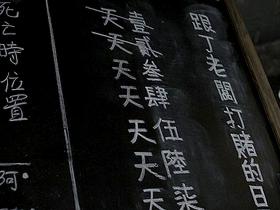 跟了老闆打賭的日
壹天
貳天
叁天
肆天
伍天
陸天
柒天
死之時位置
阿